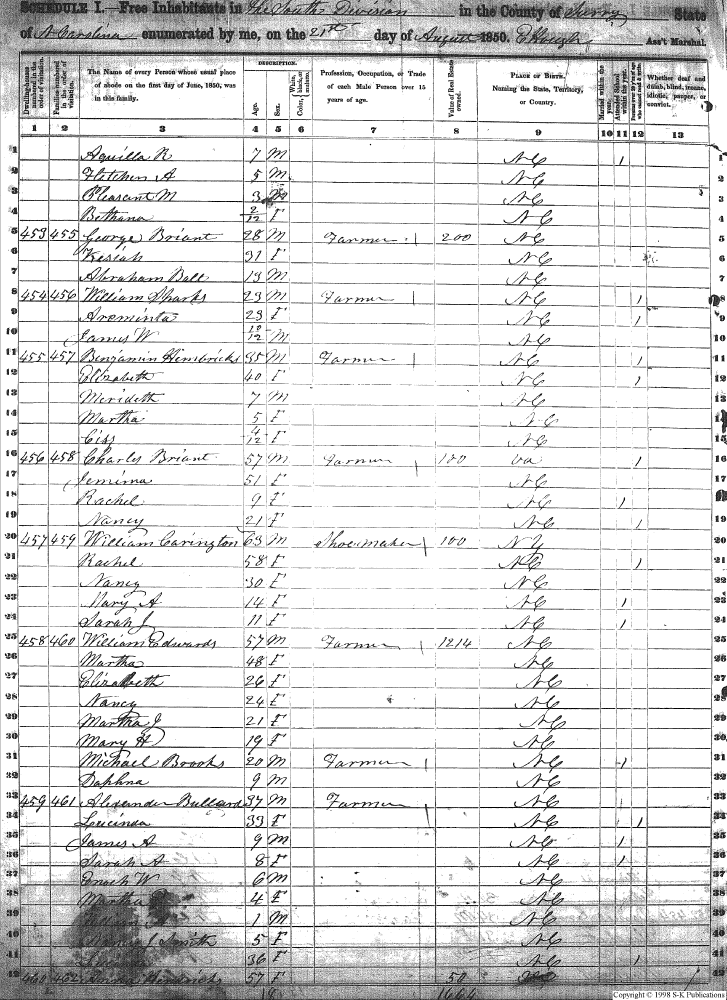 SCHEDULE I.—Free Inhabitants in The South Division in the County of Surry State
of N Carolina enumerated by me, on the 21st day of August 1850. Ass't Marshal.
DESCRIPTION.
Dwelling-houses numbered in the order of visitation.
Families numbered in the order of visitation.
The Name of every Person whose usual place of abode on the first day of June, 1850, was in this family.
Age.
Sex.
White, black, or mulatto. Color,
Profession, Occupation, or Trade of each Male Person over 15 years of age.
Value of Real Estate owned.
PLACE OF BIRTH. Naming the State, Territory, or Country.
Married within the year.
Attended School within the year.
Persons over 20 y'rs of age who cannot read & write.
Whether deaf and dumb, blind, insane, idiotic, pauper, or convict.
1 2 3 4 5 6 7 8 9 10 11 12 13
1 Aquilla R 7 M NC 1 1
2 Fletcher A 5 M NC 2
3 Pleasant M 3 M NC 3
4 Bethana 2/12 F NC 4
5 453 455 George Briant 28 M Farmer 200 NC 5
6 Kesiah 31 F NC 6
7 Abraham Ball 13 M NC 7
8 454 456 William Sparks 23 M Farmer NC 1 8
9 Areminta 23 F NC 1 9
10 James W 10/12 M NC 10
11 455 457 Benjamin Hembricks 35 M Farmer NC 1 11
12 Elizabeth 40 F NC 1 12
13 Merideth 7 M NC 13
14 Martha 5 F NC 14
15 Ciss 4/12 F NC 15
16 456 458 Charles Briant 57 M Farmer 100 Va 1 16
17 Jemima 51 F NC 17
18 Rachel 9 F NC 1 18
19 Nancy 21 F NC 1 19
20 457 459 William Carington 63 M Shoemaker 100 NY 20
21 Rachel 58 F NC 1 21
22 Nancy 30 F NC 22
23 Mary A 14 F NC 1 23
24 Sarah J 11 F NC 1 24
25 458 460 William Edwards 57 M Farmer 1214 NC 25
26 Martha 48 F NC 26
27 Elizabeth 26 F NC 27
28 Nancy 24 F NC 28
29 Martha J 21 F NC 29
30 Mary H 19 F NC 30
31 Michael Brooks 20 M Farmer NC 1 31
32 Daphna 9 M NC 32
33 459 461 Alexander Bullard 37 M Farmer NC 33
34 Leucinda 33 F NC 1 34
35 James A 9 M NC 1 35
36 Sarah A 8 F NC 1 36
37 Enoch W 6 M NC 37
38 Martha 4 F NC 38
39 1 M NC 39
40 J Smith 5 F NC 40
41 36 F NC 1 41
42 460 462 Hendricks 57 F 50 42
Copyright © 1998 S-K Publications